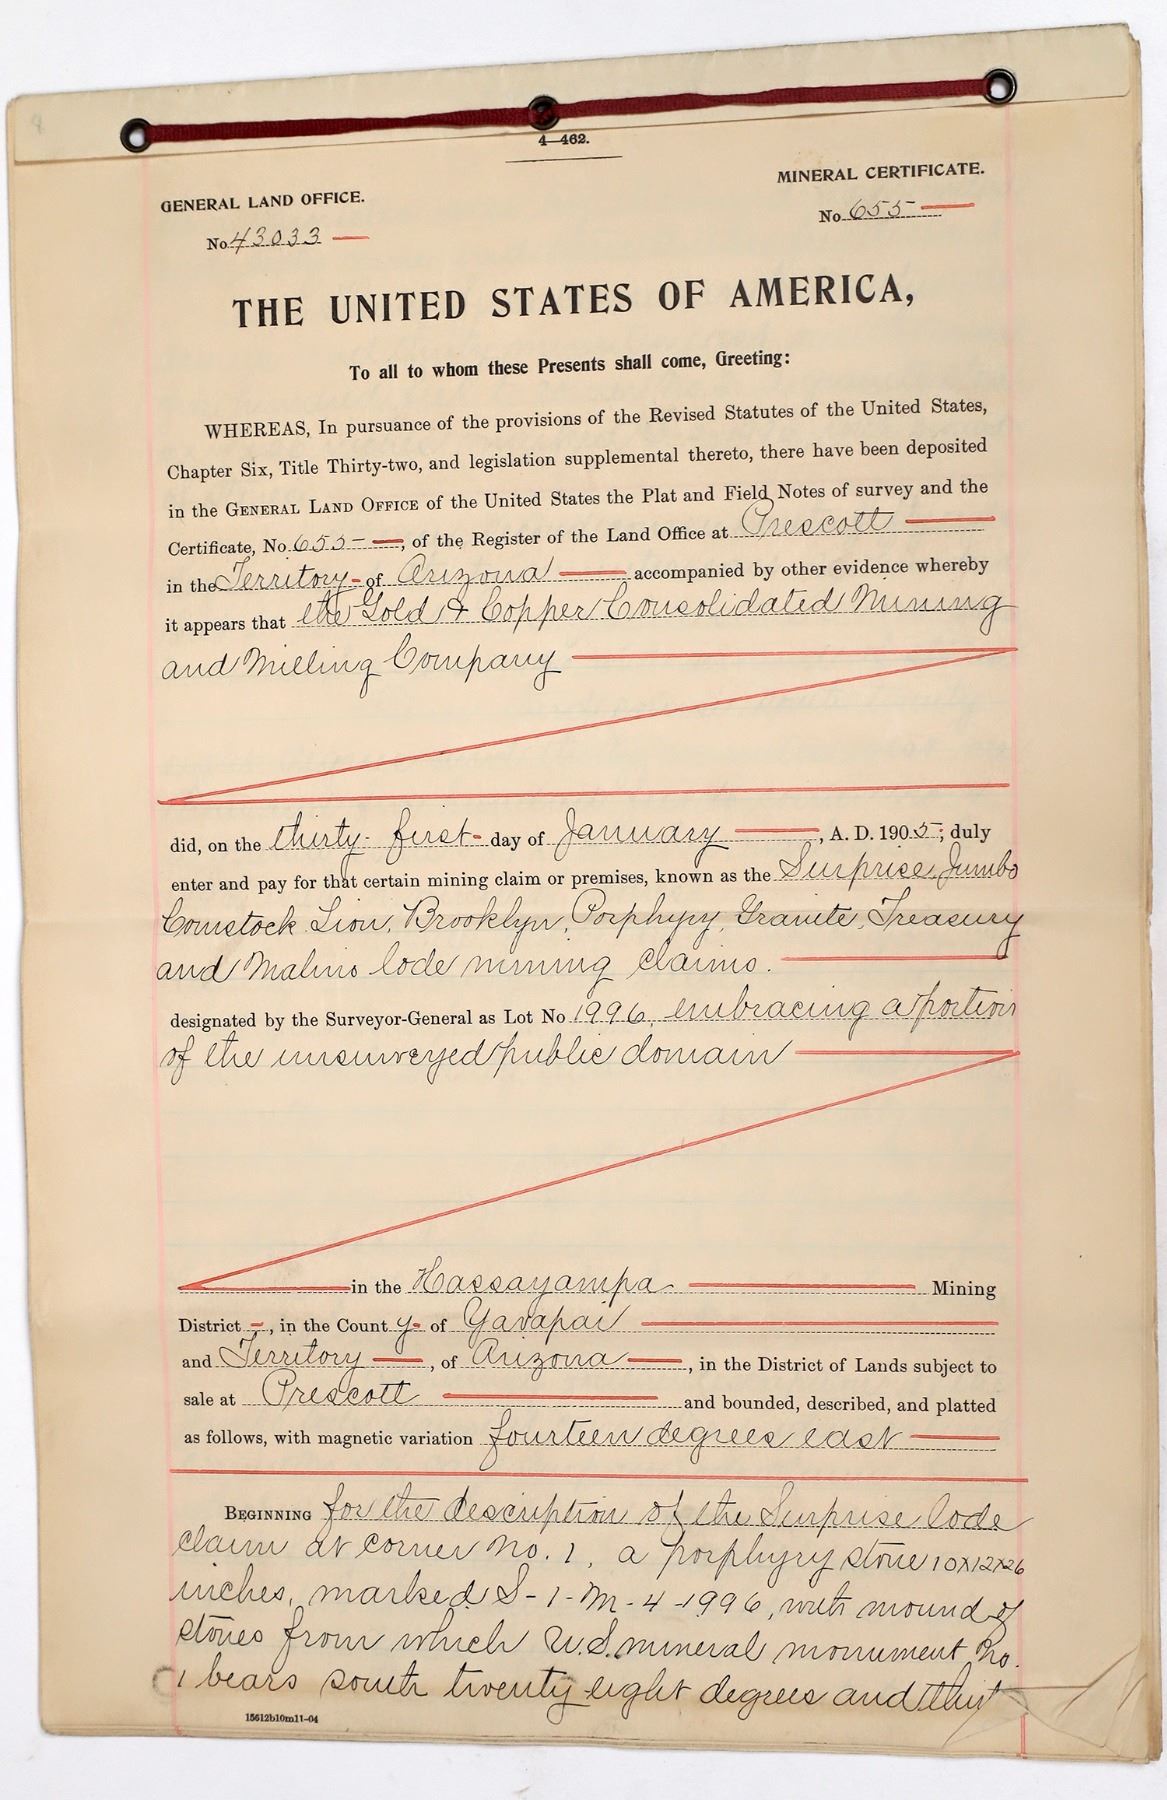 4—462.
GENERAL LAND OFFICE.
No 43033
MINERAL CERTIFICATE.
No 655
THE UNITED STATES OF AMERICA,
To all to whom these Presents shall come, Greeting:
WHEREAS, In pursuance of the provisions of the Revised Statutes of the United States,
Chapter Six, Title Thirty-two, and legislation supplemental thereto, there have been deposited
in the GENERAL LAND OFFICE of the United States the Plat and Field Notes of survey and the
Certificate, No. 655—, of the Register of the Land Office at Prescott
in the Territory of Arizona accompanied by other evidence whereby
it appears that the Gold & Copper Consolidated Mining
and Milling Company
did, on the thirty-first day of January, A. D. 1905; duly
enter and pay for that certain mining claim or premises, known as the Surprise, Jumbo
Comstock Lion, Brooklyn, Porphyry, Granite, Treasury
and Malino lode mining claims.
designated by the Surveyor-General as Lot No 1996, embracing a portion
of the unsurveyed public domain
in the Hassayampa Mining
District, in the County of Yavapai
and Territory, of Arizona, in the District of Lands subject to
sale at Prescott and bounded, described, and platted
as follows, with magnetic variation fourteen degrees east
BEGINNING for the description of the Surprise lode
claim at corner No. 1, a porphyry stone 10x12x26
inches, marked S-1-M-4-1996, with mound of
stones from which U.S. mineral monument No.
1 bears south twenty eight degrees and thir
15612b10m11-04